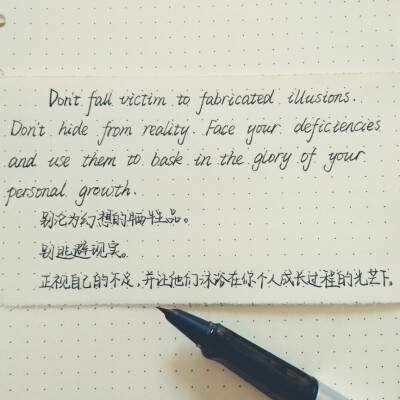 Don't fall victim to fabricated illusions.
Don't hide from reality. Face your deficiencies
and use them to bask in the glory of your
personal growth.
别沦为幻想的牺牲品。
别逃避现实。
正视自己的不足,并让他们沐浴在你个人成长过程的光芒下。